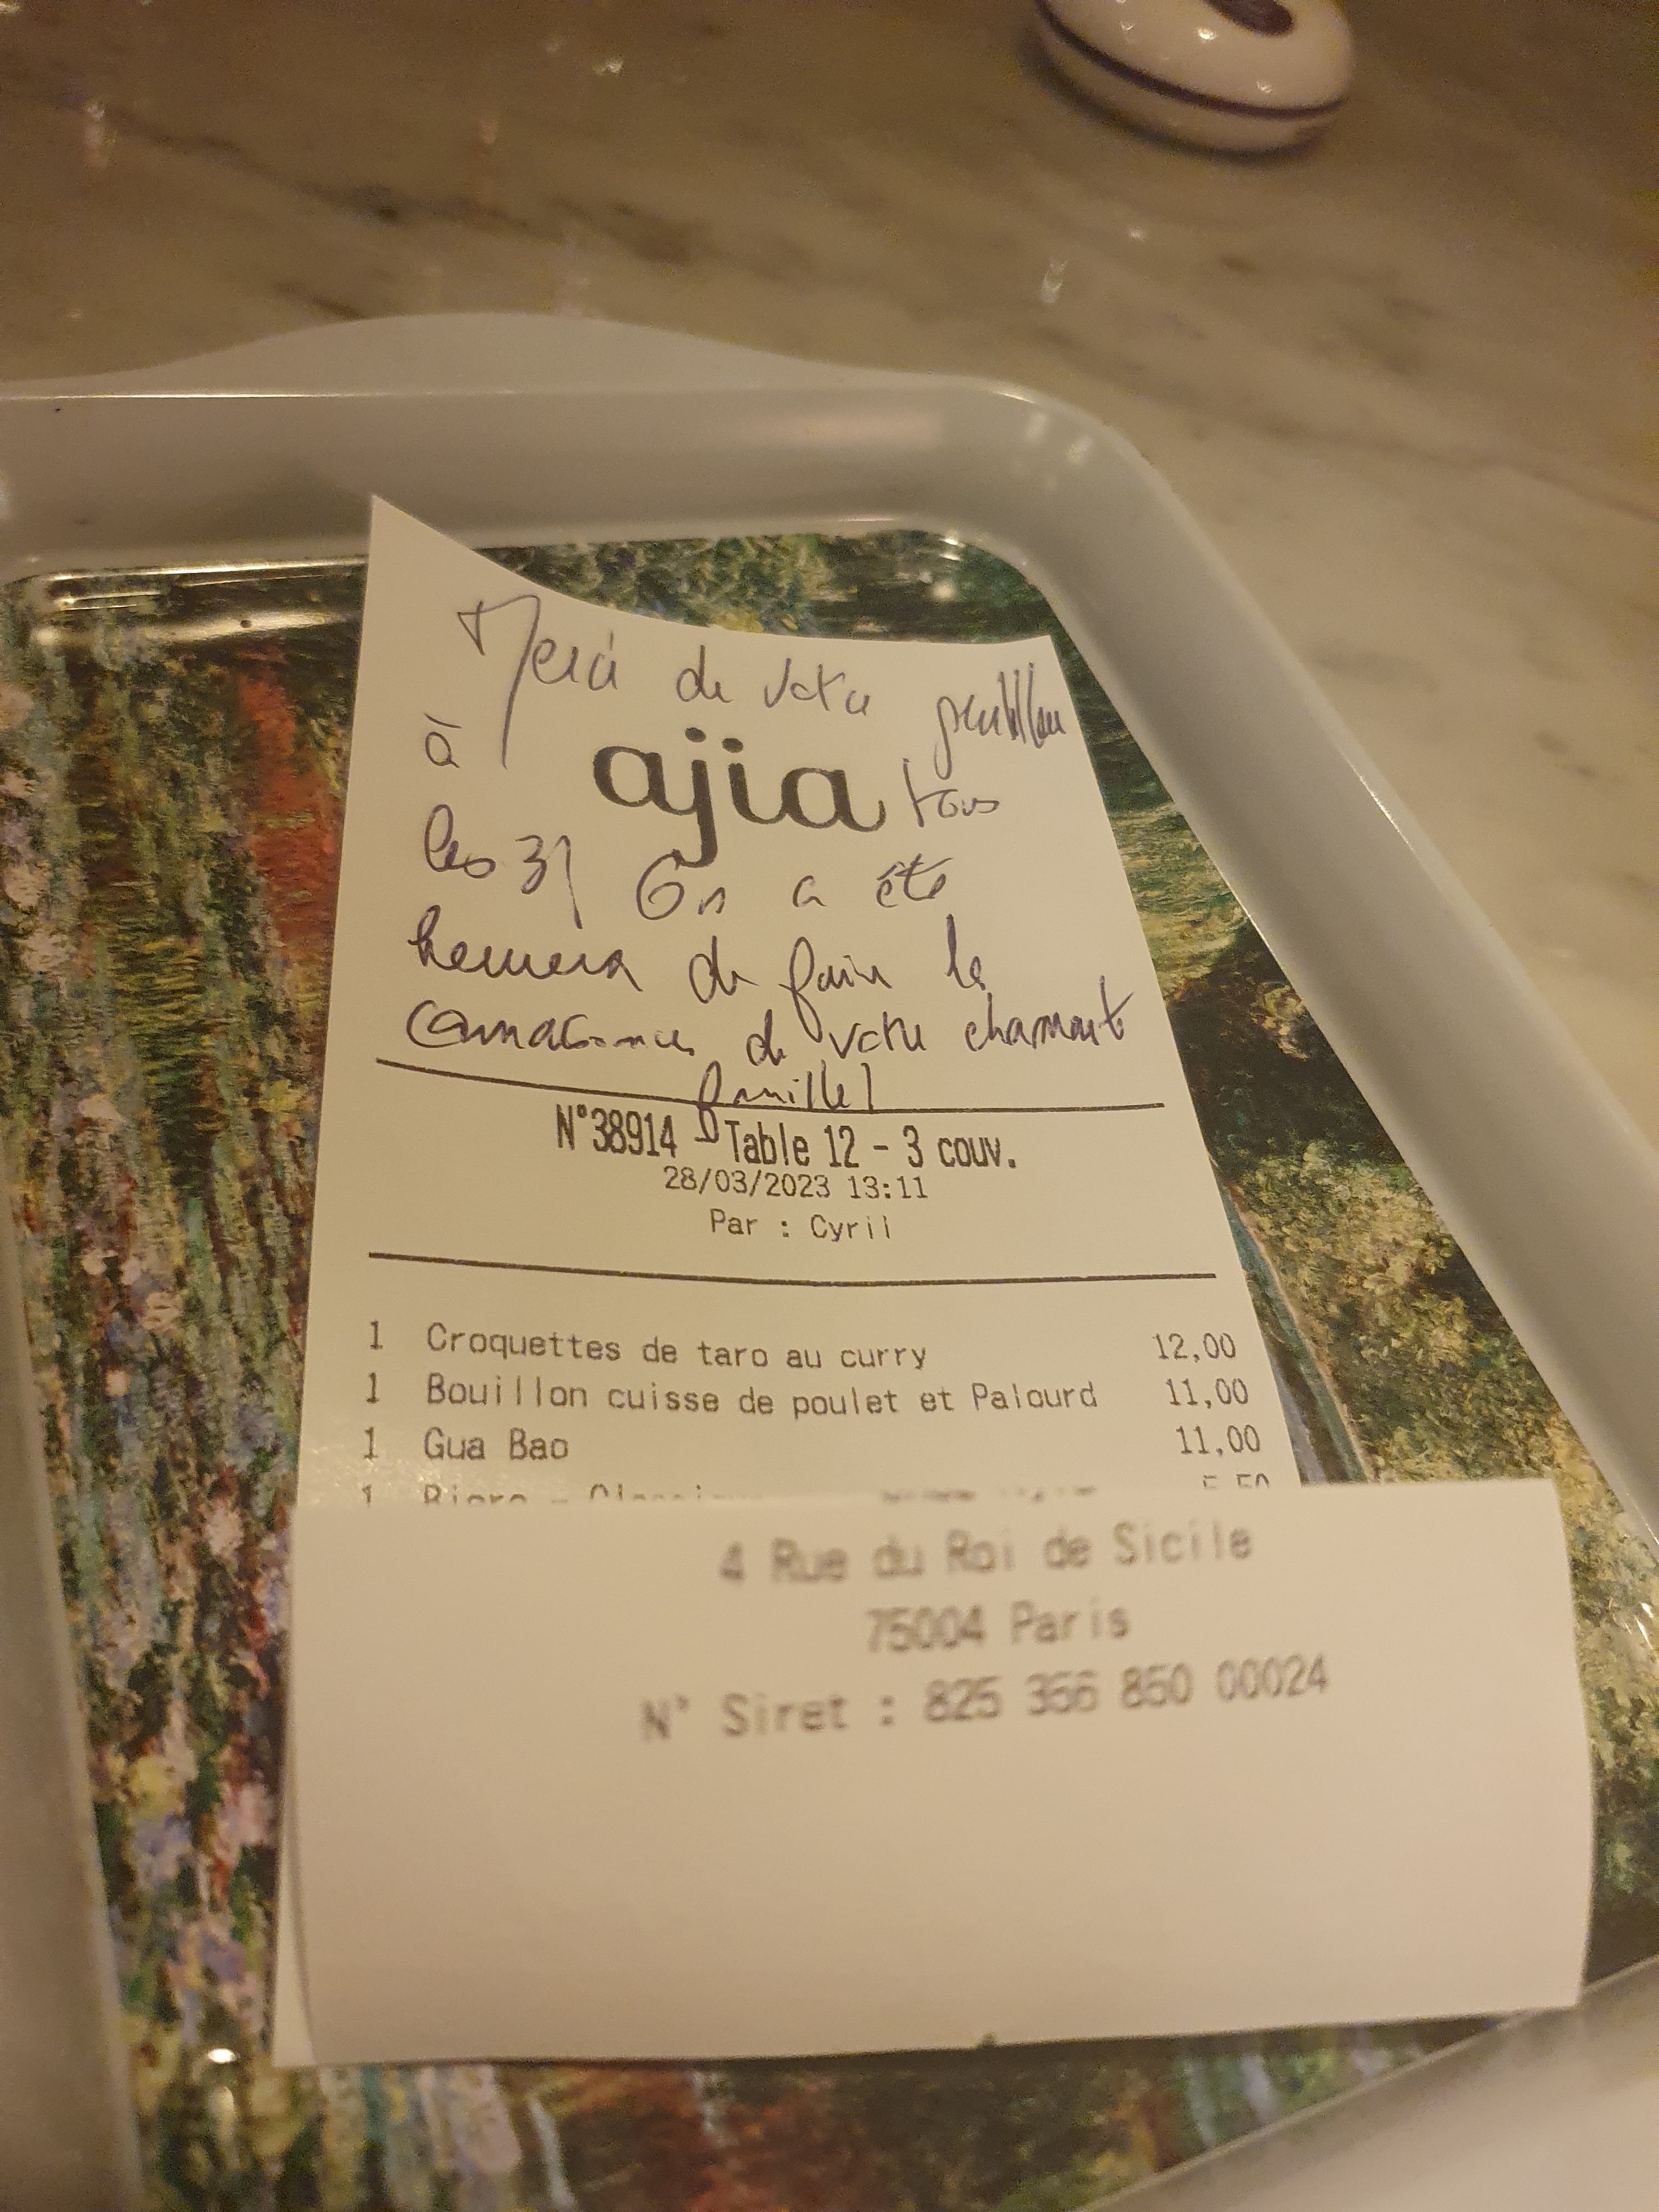 Merci de votre gentillesse
à ajia tous
les 3! On a été
heureux de faire la
connaissance de votre charmante
famille!
N°38914 - Table 12 - 3 couv.
28/03/2023 13:11
Par : Cyril
1 Croquettes de taro au curry 12,00
1 Bouillon cuisse de poulet et Palourd 11,00
1 Gua Bao 11,00
4 Rue du Roi de Sicile
75004 Paris
N° Siret : 825 366 850 00024